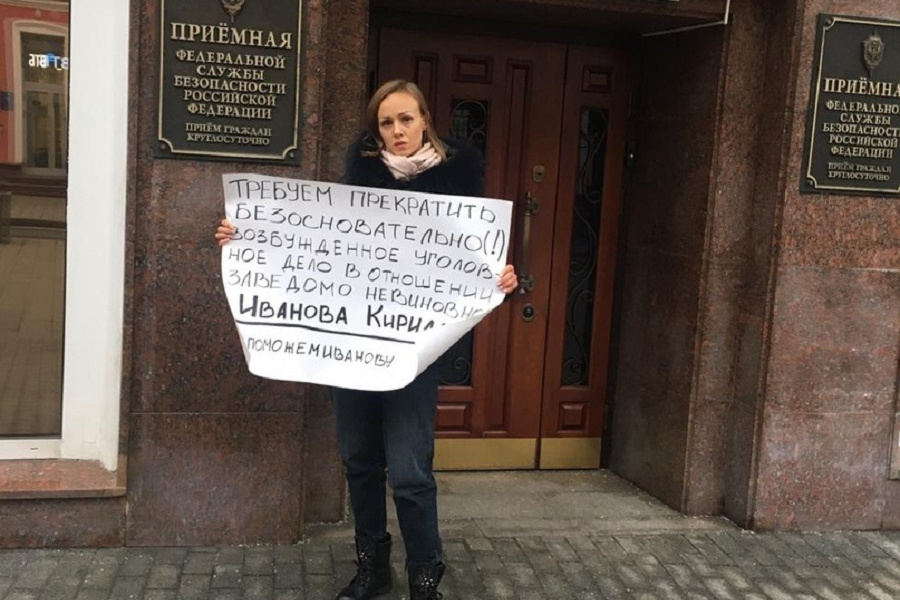 ПРИЁМНАЯ
ФЕДЕРАЛЬНОЙ
СЛУЖБЫ
БЕЗОПАСНОСТИ
РОССИЙСКОЙ
ФЕДЕРАЦИИ
ПРИЁМ ГРАЖДАН
КРУГЛОСУТОЧНО
ТРЕБУЕМ ПРЕКРАТИТЬ
БЕЗОСНОВАТЕЛЬНО(!)
ВОЗБУЖДЕННОЕ УГОЛОВ-
НОЕ ДЕЛО В ОТНОШЕНИИ
ЗАВЕДОМО НЕВИНОВНО
ИВАНОВА КИРИЛ
ПОМОЖЕМИВАНОВУ
ПРИЁМНА
ФЕДЕРАЛЬНО
СЛУЖБЫ
БЕЗОПАСНОСТИ
РОССИЙСКОЙ
ФЕДЕРАЦИИ
ПРИЁМ ГРАЖДАН
КРУГЛОСУТОЧНО